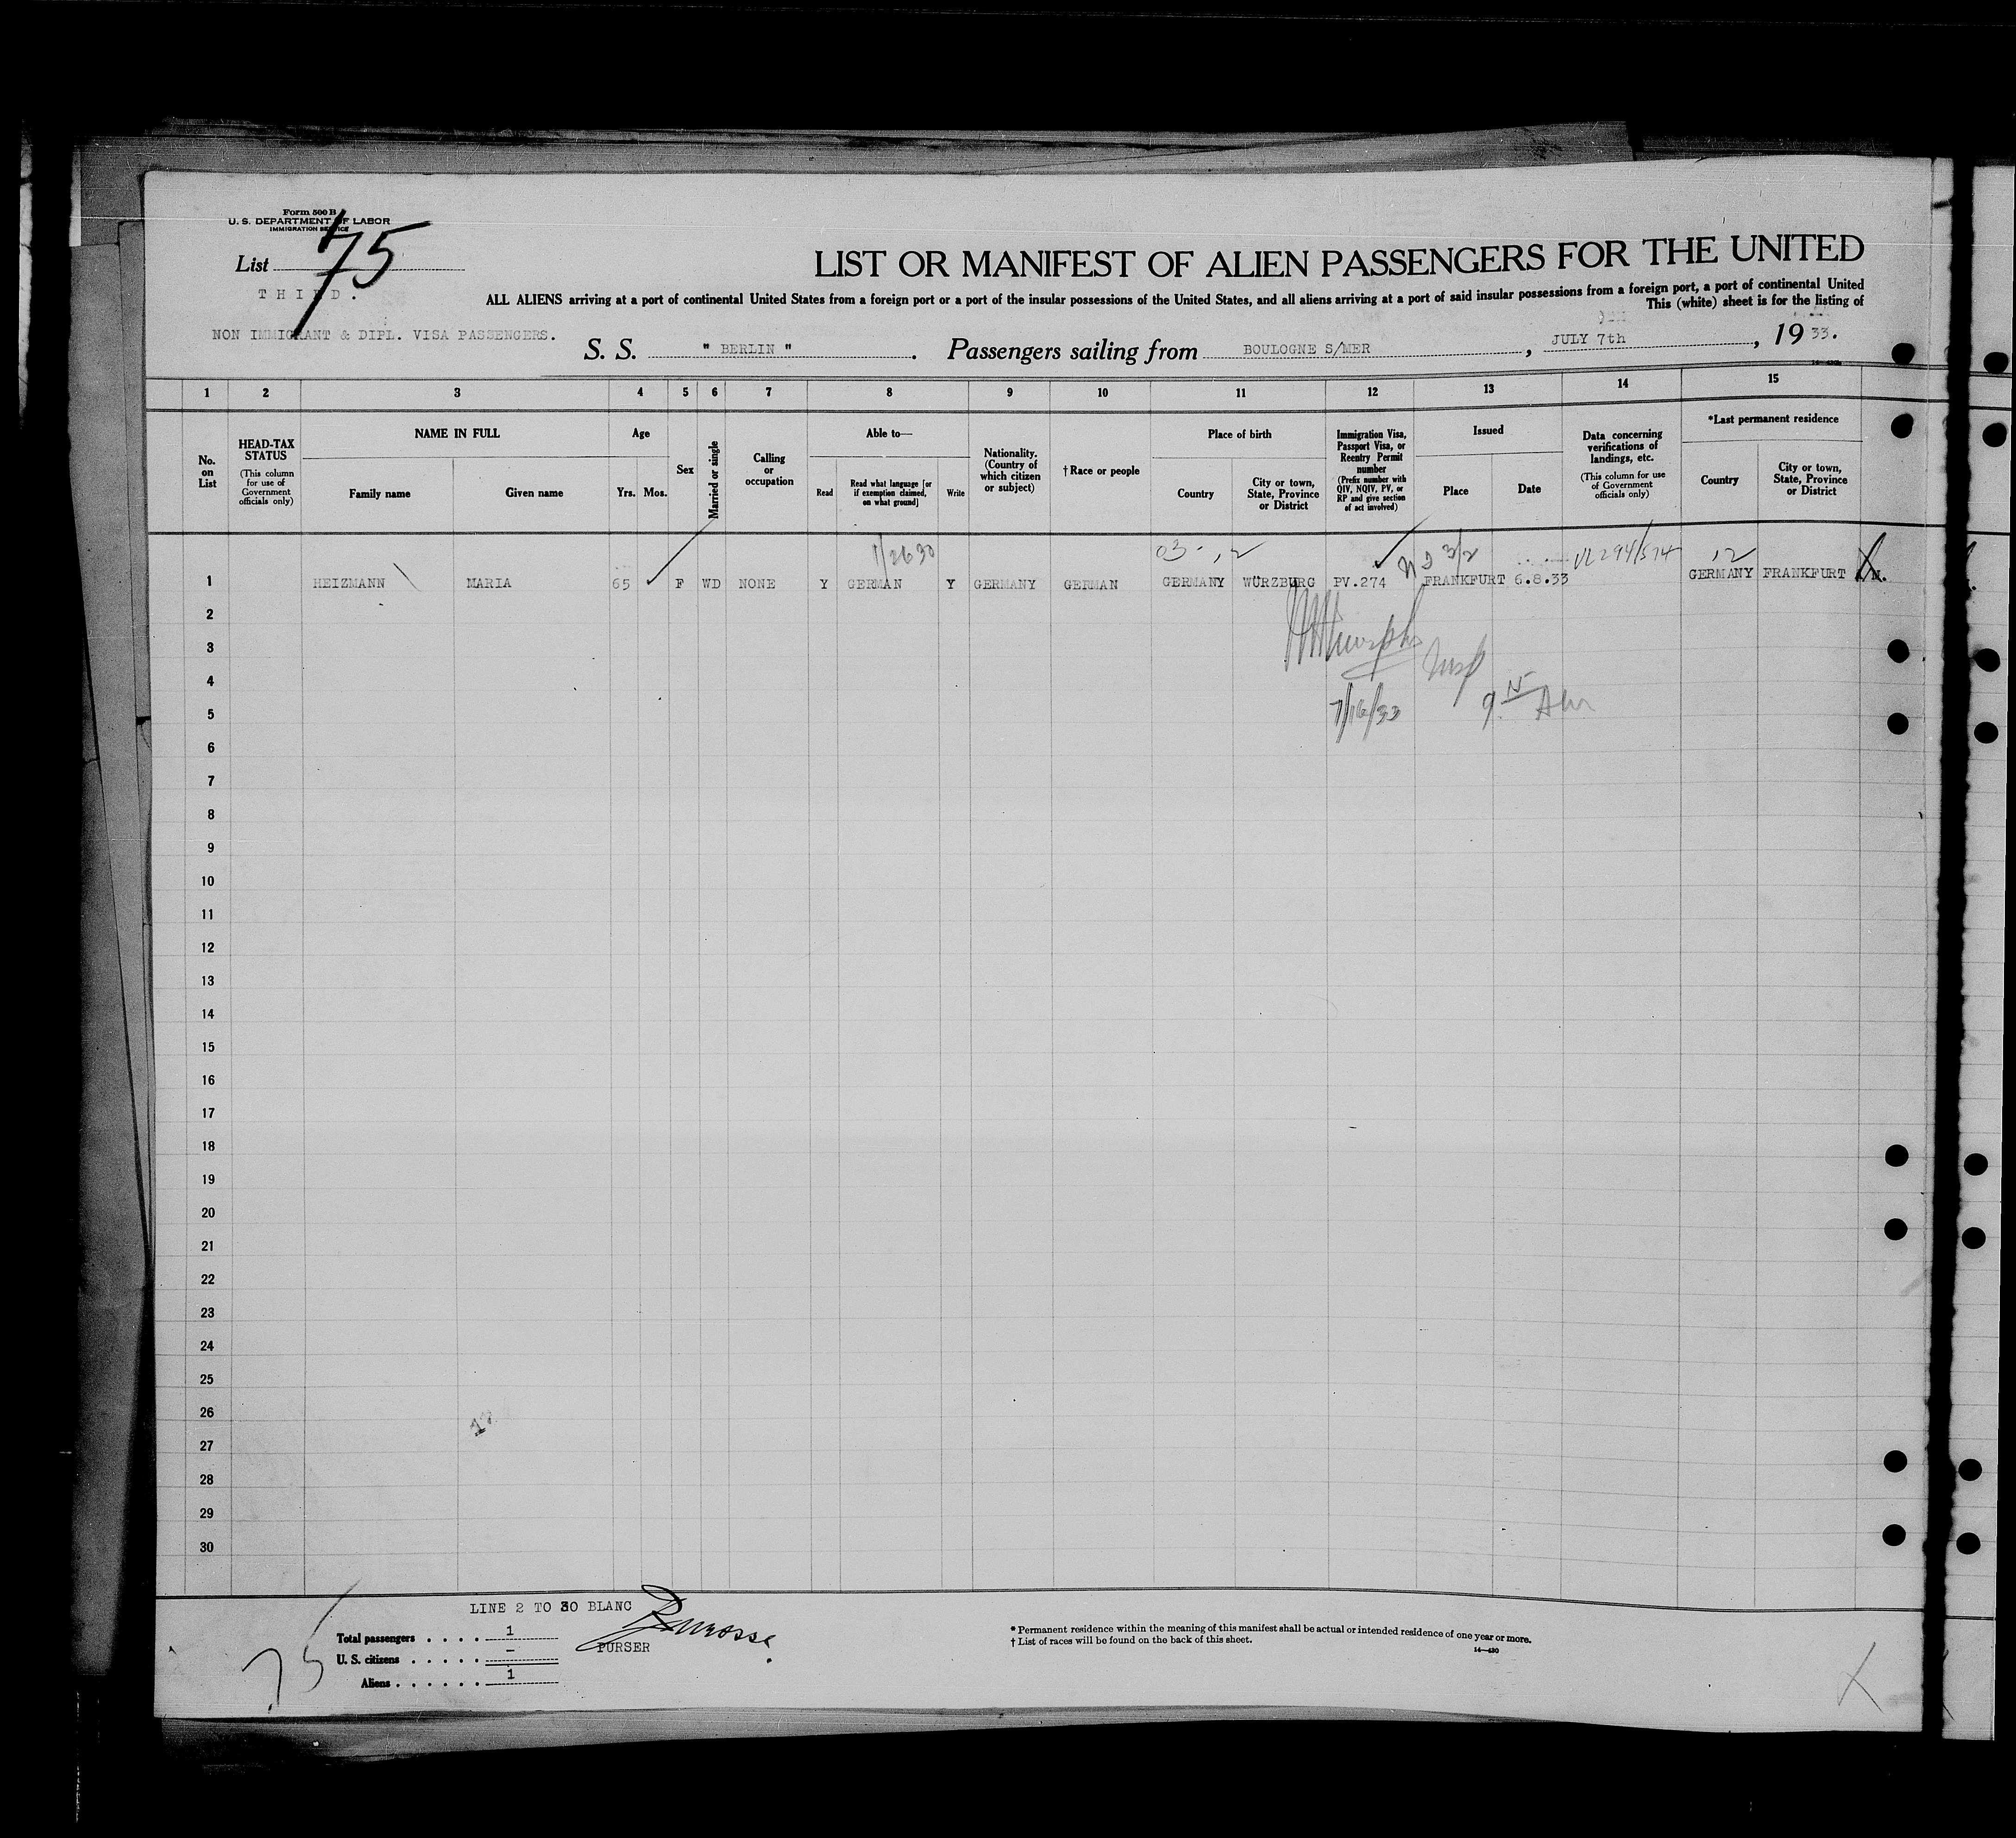 Form 500 B
U. S. DEPARTMENT OF LABOR
IMMIGRATION SERVICE
List 75
THIRD.
NON IMMIGRANT & DIPL. VISA PASSENGERS.
LIST OR MANIFEST OF ALIEN PASSENGERS FOR THE UNITED
ALL ALIENS arriving at a port of continental United States from a foreign port or a port of the insular possessions of the United States, and all aliens arriving at a port of said insular possessions from a foreign port, a port of continental United
This (white) sheet is for the listing of
S. S. " BERLIN " . Passengers sailing from BOULOGNE S/MER , JULY 7th , 19 33.
14—430
1 2 3 4 5 6 7 8 9 10 11 12 13 14 15
No. on List
HEAD-TAX STATUS (This column for use of Government officials only)
NAME IN FULL
Family name Given name
Age
Yrs. Mos.
Sex
Married or single
Calling or occupation
Able to—
Read Read what language [or if exemption claimed, on what ground] Write
Nationality. (Country of which citizen or subject)
†Race or people
Place of birth
Country City or town, State, Province or District
Immigration Visa, Passport Visa, or Reentry Permit number (Prefix number with QIV, NQIV, PV, or RP and give section of act involved)
Issued
Place Date
Data concerning verifications of landings, etc. (This column for use of Government officials only)
*Last permanent residence
Country City or town, State, Province or District
1/2630 03-12 3/2 VL 294/514 12
1 HEIZMANN MARIA 65 F WD NONE Y GERMAN Y GERMANY GERMAN GERMANY WÜRZBURG PV.274 FRANKFURT 6.8.33 GERMANY FRANKFURT
2
3
Insp
4
5
7/16/33 9 15 AM
6
7
8
9
10
11
12
13
14
15
16
17
18
19
20
21
22
23
24
25
26
27
28
29
30
LINE 2 TO 30 BLANC
Total passengers . . . . 1
PURSER
U. S. citizens . . . . . –
Aliens . . . . . . 1
75
* Permanent residence within the meaning of this manifest shall be actual or intended residence of one year or more.
† List of races will be found on the back of this sheet.
14—430
X